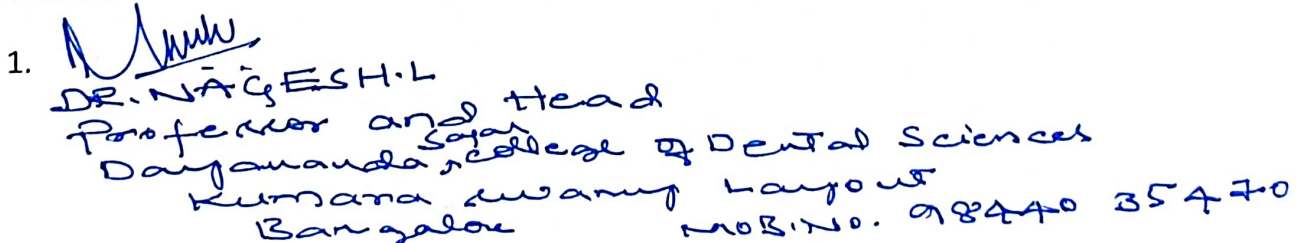 1.
DR. NAGESH.L
Professor and Head
Dayananda Sagar College of Dental Sciences
Kumara swamy Layout
Bangalore MOB.NO. 98440 35470